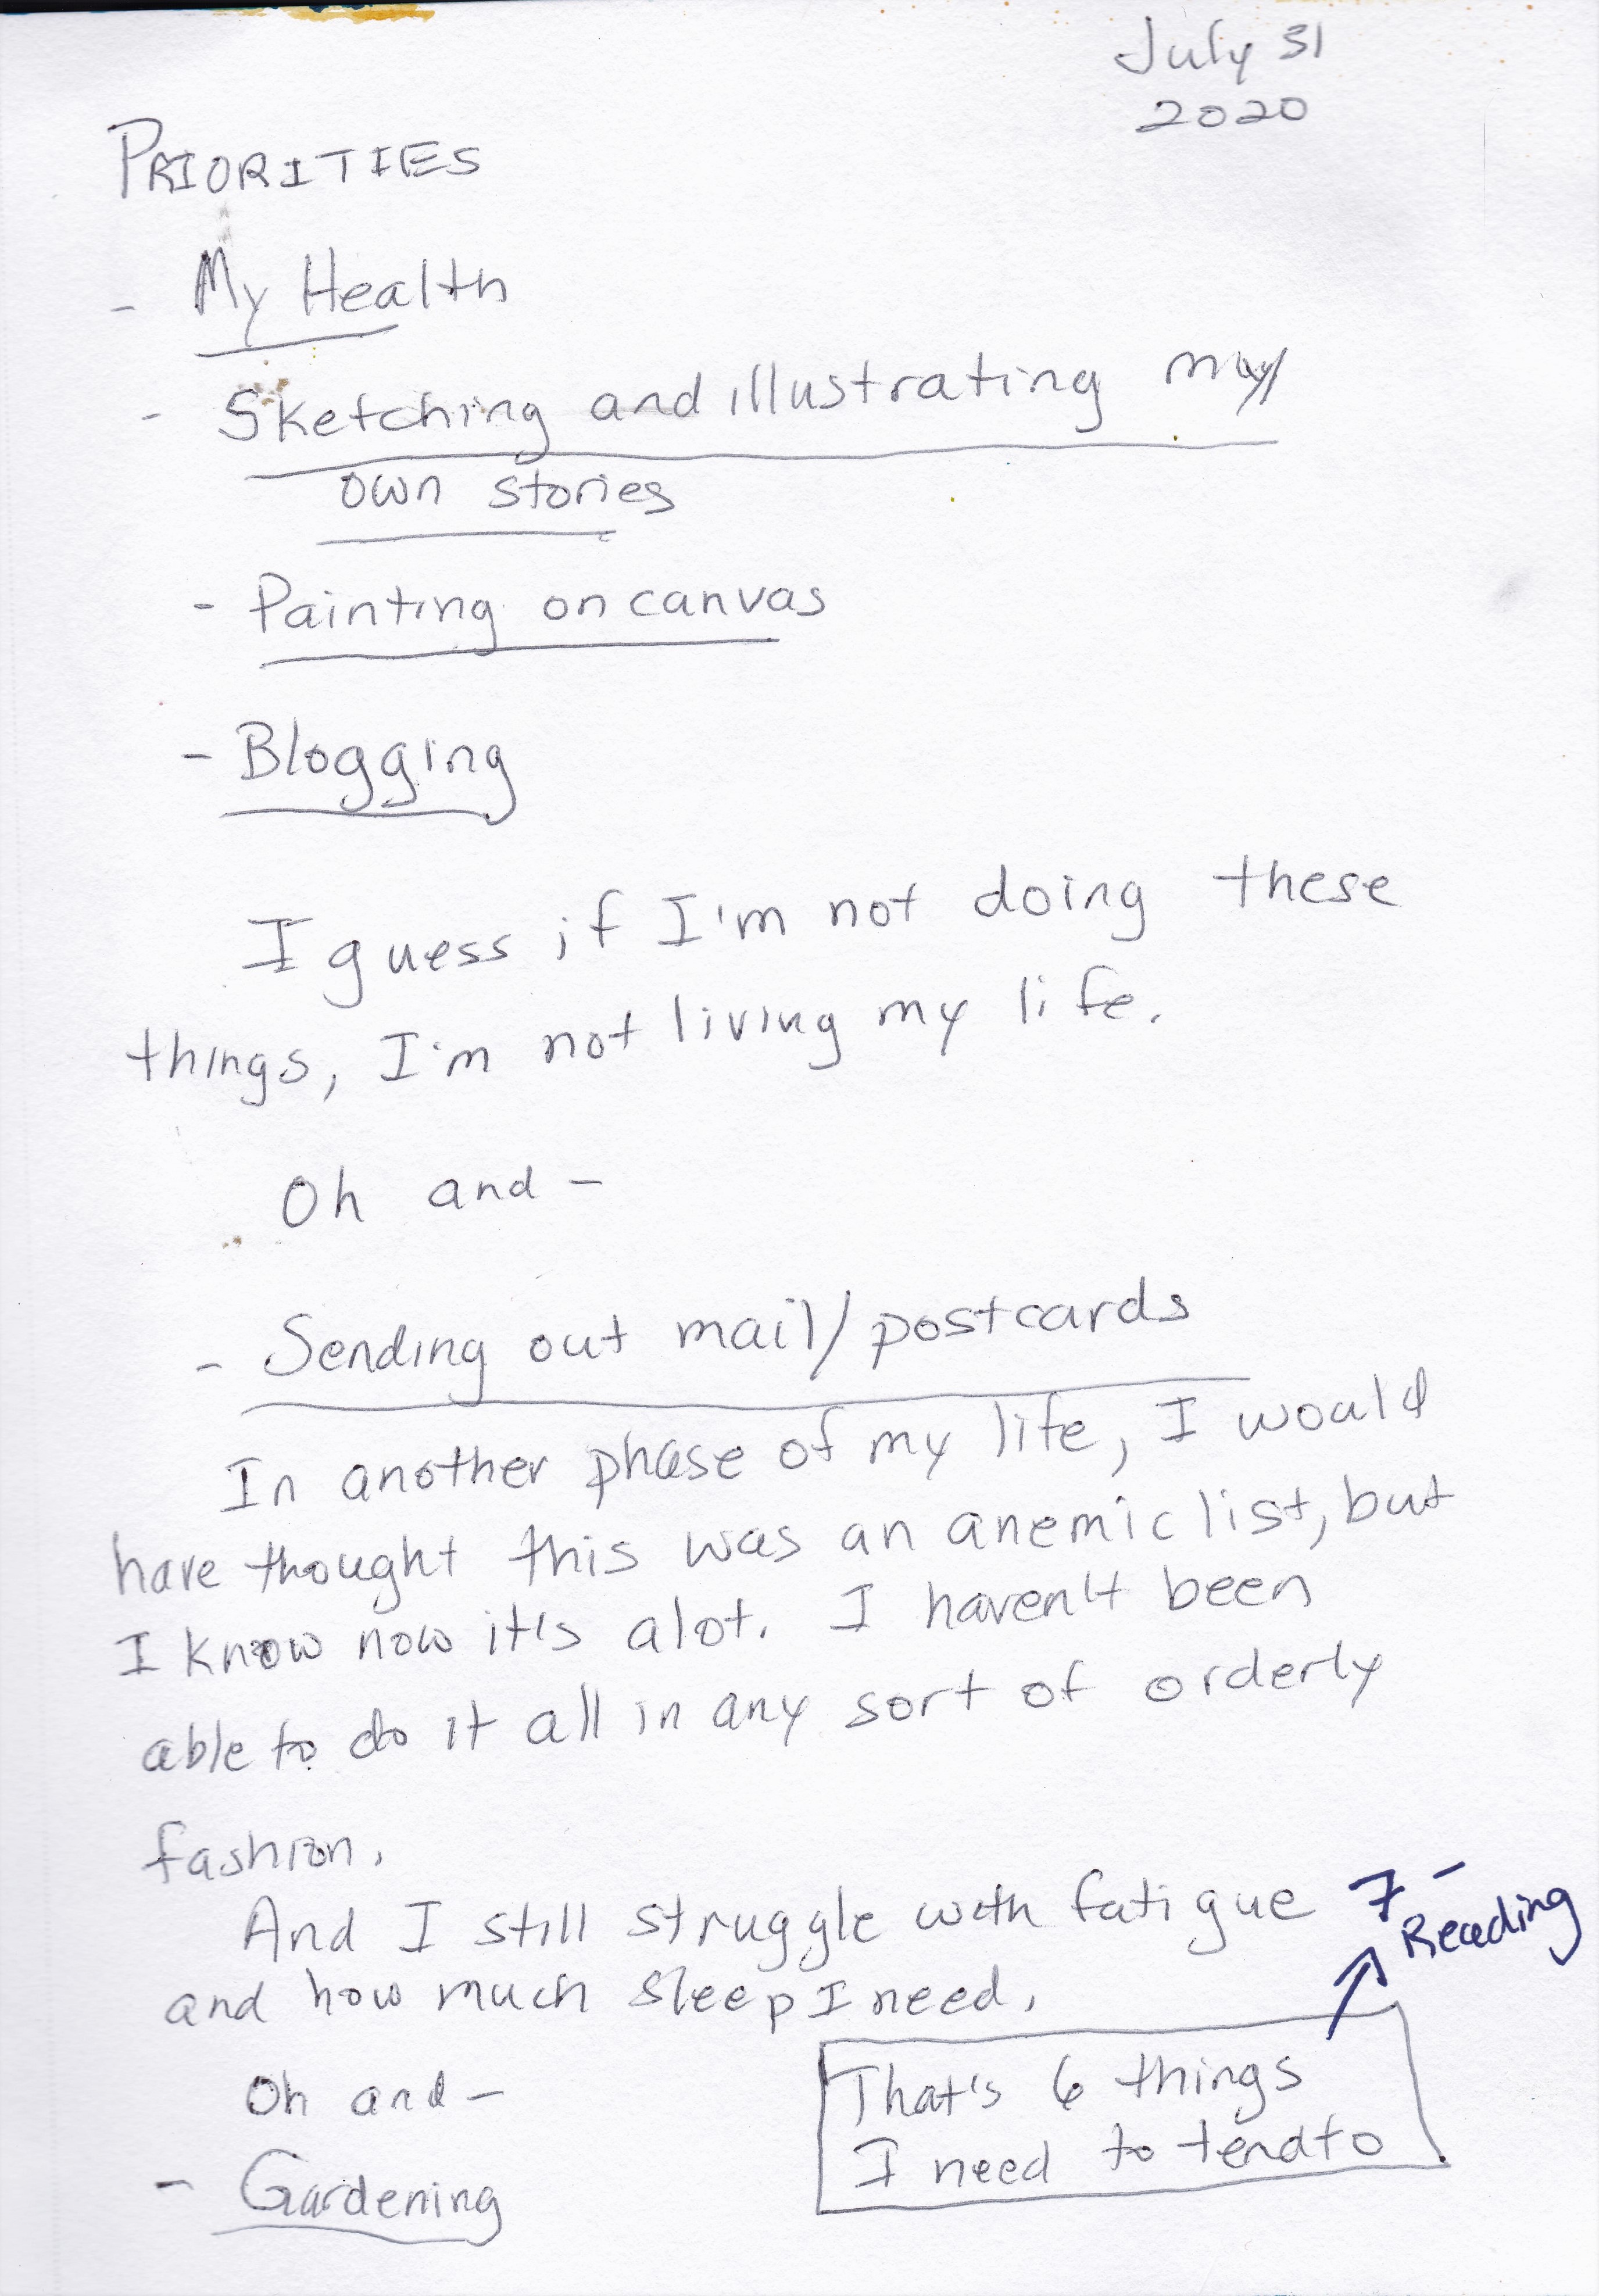 July 31
2020
PRIORITIES
- My Health
- Sketching and illustrating my
own stories
- Painting on canvas
- Blogging
I guess if I'm not doing these
things, I'm not living my life.
Oh and -
- Sending out mail/postcards
In another phase of my life, I would
have thought this was an anemic list, but
I know now it's alot. I haven't been
able to do it all in any sort of orderly
fashion.
And I still struggle with fatigue
and how much sleep I need.
7 -
Reading
Oh and -
- Gardening
That's 6 things
I need to tend to